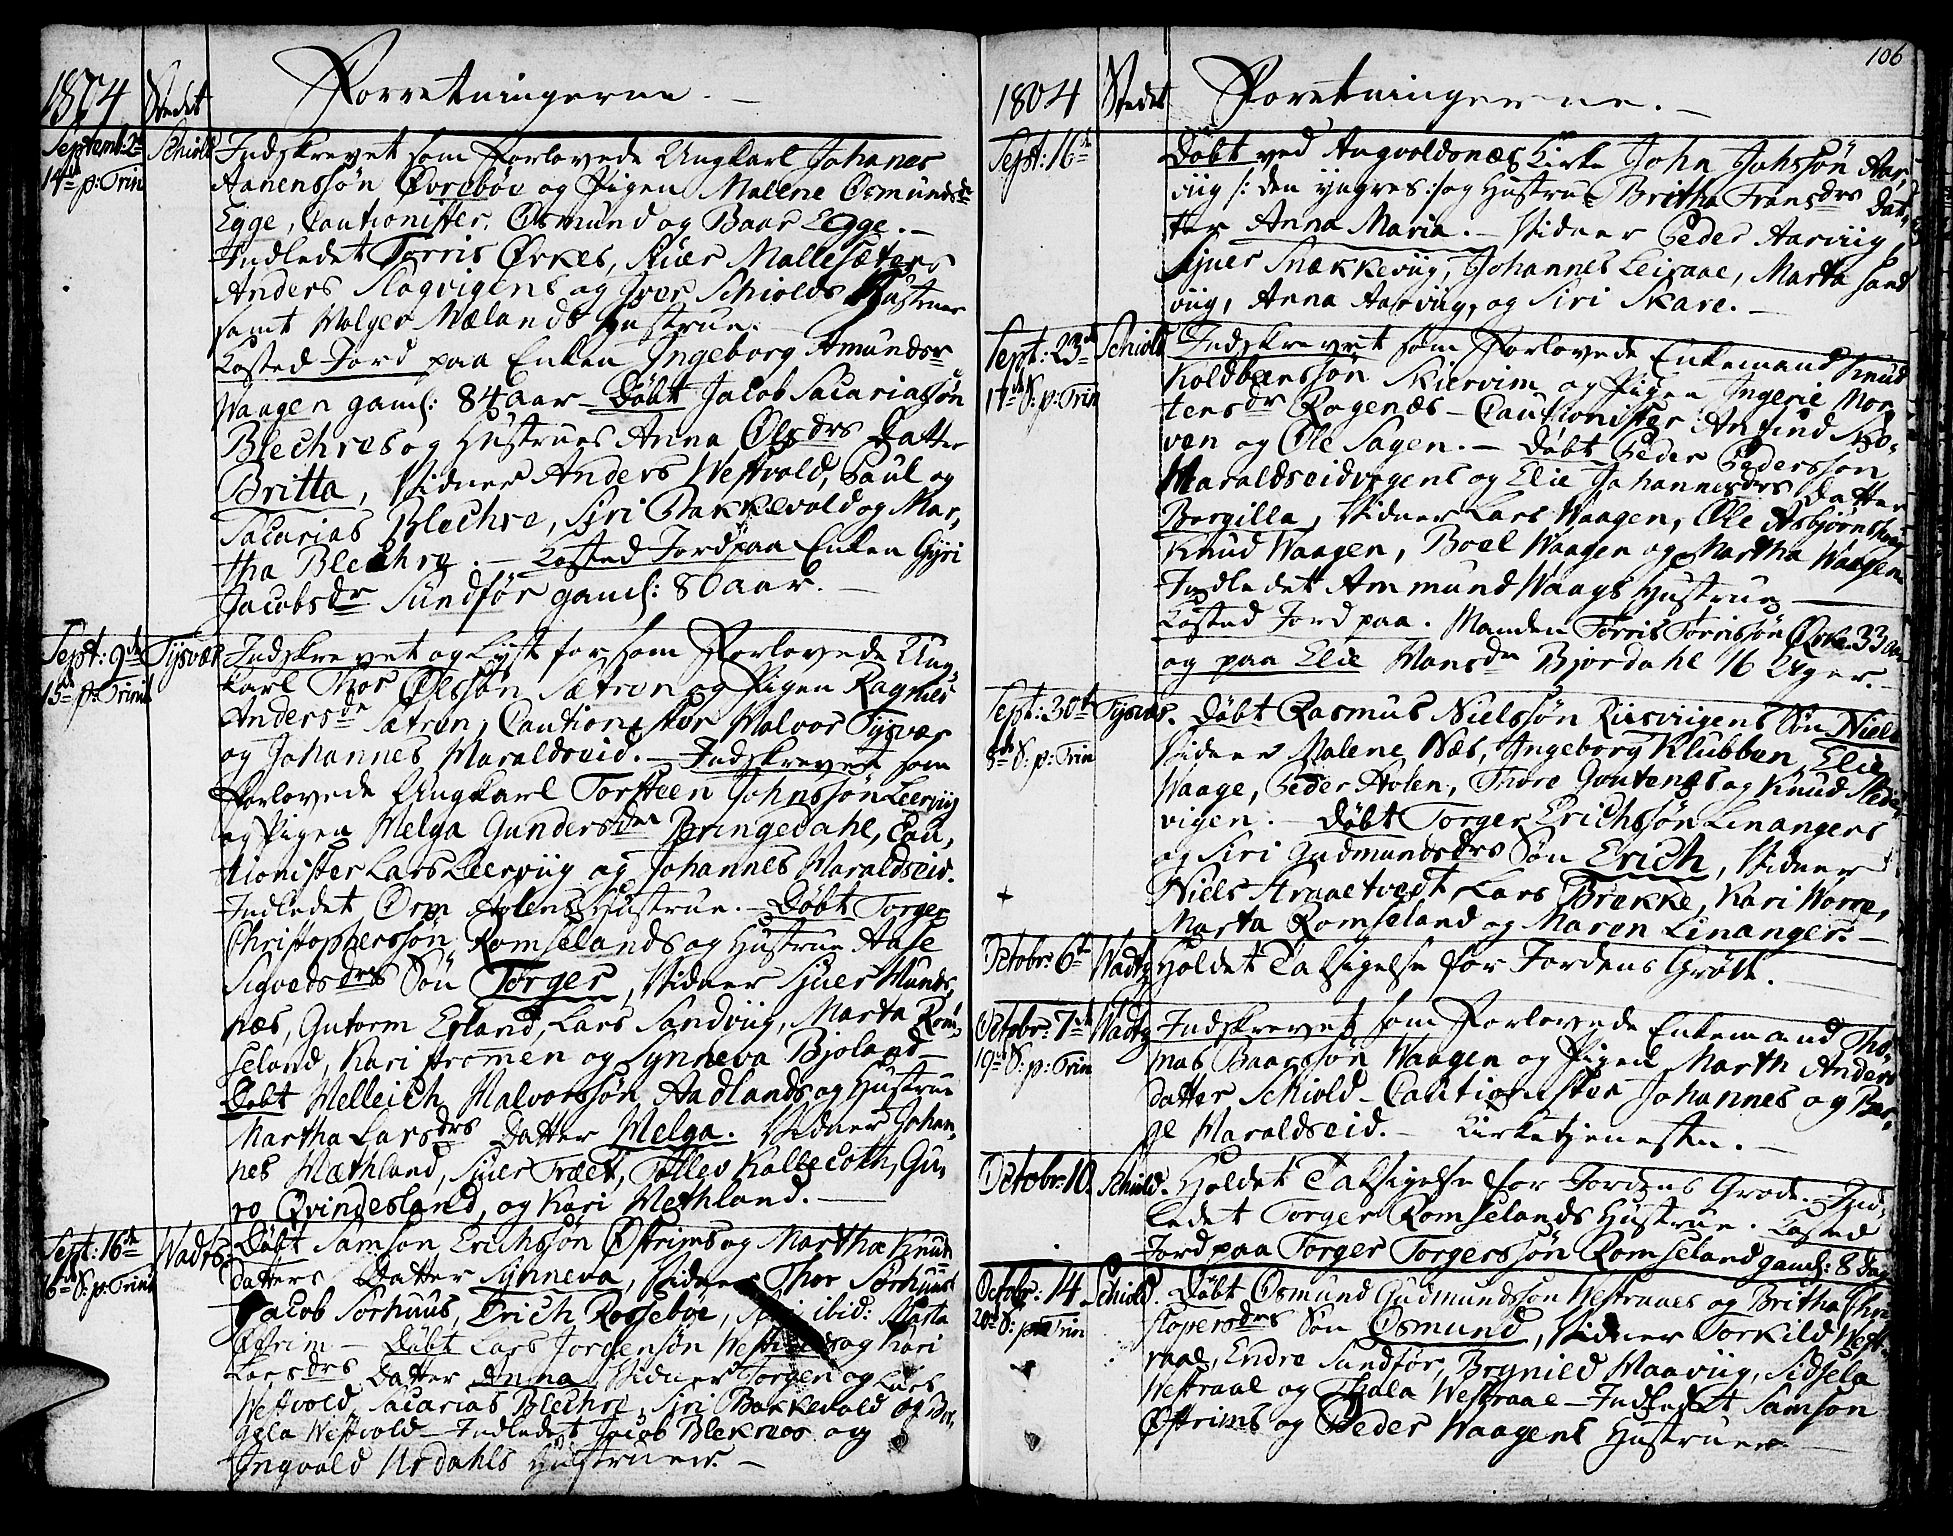 1804 Stedet Forretningerne.
Septemb: 2den Schiold Indskrevet som Forlovede Ungkarl Johanes
14de p: Trin Aanenssön Övreböe og Pigen Malene Osmundsdr
Egge, Cautionister, Osmund og Baar Egge.
Indledet Torris Örkes, Siver Mallesæters
Anders Slogvigens og Iver Schiolds Hustruer
samt Holger Mælands Hustrue.
Kasted Jord paa Enken Ingeborg Amundsdr
Waagen gaml: 84 aar – Döbt Jacob Sacariassön
Blechres og Hustrues Anna Olsdrs Datter
Britta, Vidner Anders Westvold, Paul og
Sacarias Blechre, Siri Bakkevold og Mar,
tha Blechre. – Kasted Jord paa Enken Gyri
Jacobsdr Sundför gaml: 80 aar. –
Sept: 9de Tysvær Indskrevet og Lyst for som Forlovede Ung
15de p: Trinit karl Thor Olssön Sætren og Pigen Ragnild
Andersdr Sætren, Cautionister Halvor Tysvær
og Johannes Haraldseid. – Indskrevet som
Forlovede Ungkarl Torsteen Johnssön Leerviig
og Pigen Helga Gundersdr Bringedahl, Cau,
tionister Lars Leerviig og Johannes Haraldseid.
Indledet Orm Holens Hustrue. – Döbt Torger
Christopherssön Romselands og Hustrue Aase
Sigvedsdrs Sön Torger, Vidner Siuer Hunds,
næs, Gutorm Epland, Lars Sandviig, Marta Rom,
seland, Kari Stromen og Synneva Bjoland –
Döbt Helleich Halvorssön Aadlands og Hustrue
Martha Larsdrs Datter Helga. Vidner Johan,
nes Mæthland, Siuer Træet, Tollev Kallecoth, Gu,
ro Qvindesland, og Kari Methland.
Sept: 16de Wadts: Döbt Samson Erichssön Östrims og Martha Knuds
16de S: p: Trinit datters Datter Synneva, Vidner Thor Sörhuus
Jacob Sorhuus, Erich Rosseboe, ibid: Marta
Östrim – Döbt Lars Jordenson Westvolds og Kari
Larsdrs Datter Anna Vidner Torgen og Lars
Westvold, Sacarias Blechre, Siri Bakkevold og Bor,
gela Westvold – Indledet Jacob Blekraes og
Ingvald Urdahls Hustruer. –
106
1804 Stedet Foretningerne.
Sept: 16de Döbt ved Augvoldsnæs Kirke John Johssön Aar,
viig /: den yngres :/ og Hustrue Britha Fransdrs Dat,
ter Anna Maria. – Vidner Peder Aarviig,
Siuer Snekkeviig, Johannes Leiraae, Marta Sand
viig, Anna Aarviig, og Siri Skare. –
Sept: 23de Schiold Indskrevet som Forlovede Enkemand Knud
17de S: p: Trin Koldbensson Skiervim og Pigen Ingerie Mor,
tensdr Ragenæs – Cautionister Anfind Sko,
ven og Ole Sagen. – Döbt Peder Pederssön
Haraldseidvigens og Elie Johannesdrs Datter
Borgilla, Vidner Lars Waagen, Ole Asbjörnshaug
Knud Waagen, Boel Waagen og Martha Waagen
Indledet Ammund Waags Hustrue –
Kasted Jord paa. Manden Torris Torrissön Örke 33 aar
og paa Elie Hansdr Bjordahl 16 Uger. –
Sept: 30te Tysvær. Döbt Rasmus Nielssön Riisviigens Sön Niels
8de S: p: Trin Vidner Malene Næs, Ingeborg Klubben, Elie
Waage, Peder Holen, Thore Gontenæs og Knud Slede,
vigen. – Döbt Torger Erichssön Linangers
og Siri Gudmundsdrs Sön Erich, Vidner
Niels Straaetvedt, Lars Brekke, Kari Worre,
Marta Romseland og Maren Linanger. –
Octobr: 6te Wadtz Holdet Taksigelse for Jordens Gröde.
Octobr: 7de Wadtz Indskrevet som Forlovede Enkemand Tho,
19de S: p: Trin mas Baarsson Waagen og Pigen Marth Anders
datter Schiold – Cautionister Johannes og Bör,
ge Haraldseid. – Kirketjenesten. –
Octobr: 10. Schiold. Holdet Taksigelse for Jordens Grode. Ind,
ledet Torger Romselands Hustrue. Kasted
Jord paa Torger Torgerssön Romseland gaml: 8 dage
Octobr: 14. Schiold. Döbt Osmund Gudmundsson Westraaes og Britha Chri
20de S: p: Trin stopersdrs Sön Osmund, Vidner Torkild West,
raae, Endre Sundför, Brynild Haaviig, Sidsela
Westraae og Thala Westraae – Indledet Samson
Östrims og Peder Waagens Hustruer –